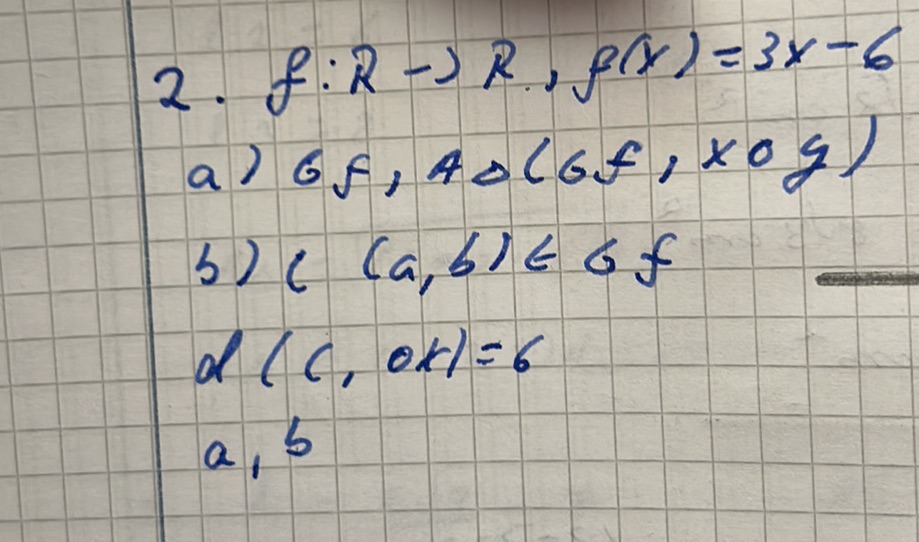 2. f:R -> R, f(x)=3x-6
a) Gf, A△(Gf, xoy)
b) C (a,b) ∈ Gf
d(C, ox)=6
a, b